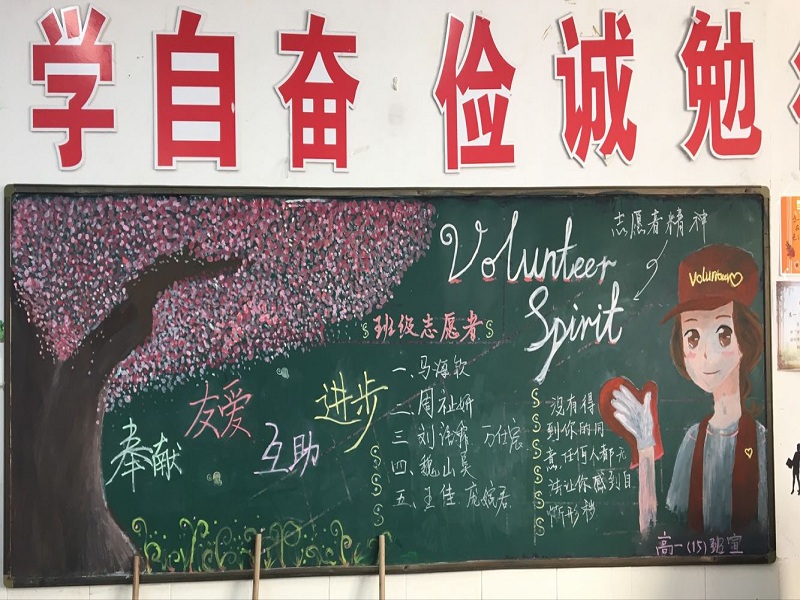 学自奋 俭诚勉
Volunteer
Spirit
志愿者精神
Volunteer
班级志愿者
一、马海钦
二、周祉妍
三、刘洁霏 万仕宸
四、魏山昊
五、王佳 庞嫔君
奉献
友爱
互助
进步
没有得
到你的同
意任何人都无
法让你感到自
惭形秽
高一(15)班宣